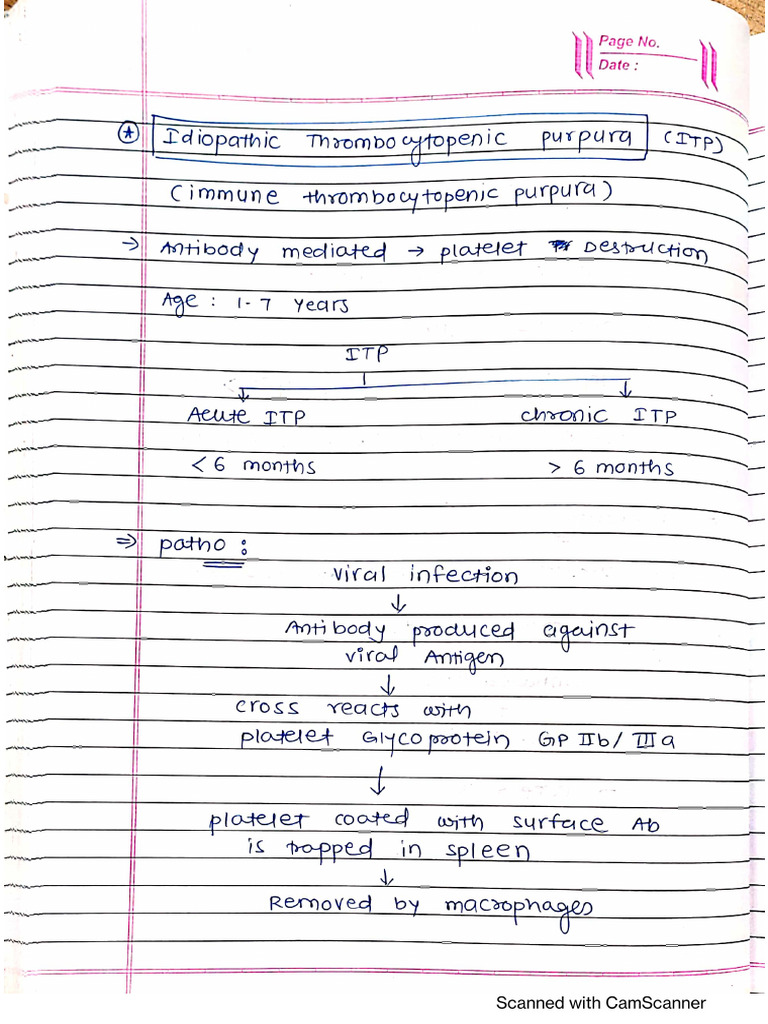 Page No.
Date :
Idiopathic Thrombocytopenic purpura (ITP)
(immune thrombocytopenic purpura)
→ Antibody mediated → platelet Destruction
Age : 1-7 years
ITP
Acute ITP chronic ITP
< 6 months > 6 months
⇒ patho :
viral infection
↓
Antibody produced against
viral Antigen
↓
cross reacts with
platelet Glycoprotein GP IIb/ IIIa
↓
platelet coated with surface Ab
is trapped in spleen
↓
Removed by macrophages
Scanned with CamScanner